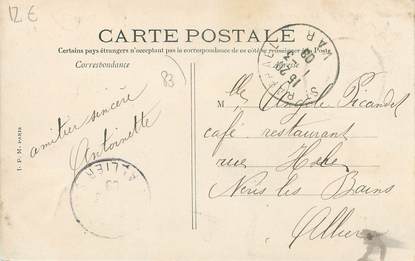 12 €
CARTE POSTALE
Certains pays étrangers n'acceptant pas la correspondance de ce côté, se renseigner à la Poste
Correspondance
83
amitier sincère
Antoinette
I. P. M. PARIS
ALLIER
VAR
15
3
09
M
Elle Angèle Picandet
café restaurant
rue Hoche
Neris les Bains
Allier